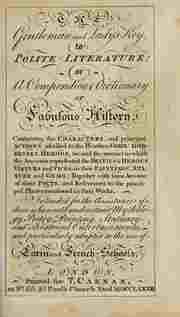 THE
Gentleman and Lady's Key,
to
POLITE LITERATURE:
or
A Compendious Dictionary
OF
Fabulous History
Containing the CHARACTERS, and principal
ACTIONS ascribed to the Heathen GODS,
HEROES, &
the Ancients represented the DEITIES & HEROES
VIRTUES and VICES, in their PAINTINGS,
and GEMS: Together with some Account
of their POETS, and References to the princi
pal Places mentioned in their Works.
Intended for the Assistance of
understand Mythology
Poetry, Painting, Statuary
and Theatrical Entertainments,
and particularly adapted to the use of
Latin and French Schools.
LONDON,
Printed for T. CARNAN,
at No. 65 St Pauls Church Yard